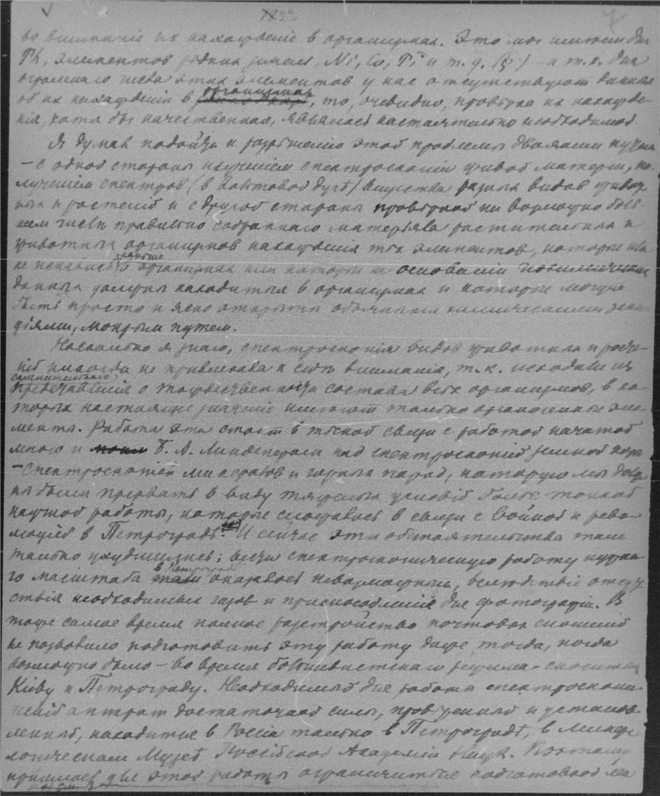 во вниманіе их нахожденіе в организмах. Это мы имеем для
элементов рядких земель, Ni, Co, Ti и т. д. а т. к. для
огромнаго числа этих элементов у нас отсутствуют данныя
об их нахожденіи в организмах, то, очевидно, провѣрка их нахожде-
нія, хотя бы качественная, являлась настоятельно необходимой.
Я думал подойти к разрѣшенію этой проблемы двоякими путями
— с одной стороны изученіем спектроскопіи живой матеріи, по-
лученіем спектров (в вольтовой дугѣ) вещества разных видов живот-
ных и растеній и с другой стороны провѣркой на возможно боль-
шем числѣ правильно собраннаго матеріала растительных и
животных организмов нахожденія тѣх элементов, которых
не искали в организмах или которые на основаніи
данных должны находиться в организмах и которые могут
быть просто и ясно открыты обычными химическими реак-
ціями, мокрым путем.
Насколько я знаю, спектроскопія видов животных и расте-
ній никогда не привлекала к себѣ вниманія, т. к. исходили из
представленія о тождественном составѣ всѣх организмов, в ко-
торых настоящее значеніе имѣют только органогенные эле-
менты. Работа эта стоит в тѣсной связи с работой начатой
мною и Б. А. Линденером над спектроскопіей земной коры
— спектроскопіей минералов и горных пород, которую мы долж-
ны были прервать в виду тяжелых условій болѣе тонкой
научной работы, которые сложились в связи с войной и рево-
люціей в Петроградѣ. И сейчас эти обстоятельства там
только ухудшились; вести спектроскопическую работу нужна-
го масштаба в Петроградѣ оказалось невозможным, вслѣдствіе отсут-
ствія необходимых газов и приспособленій для фотографіи. В
тоже самое время полное разстройство почтовых сношеній
не позволило подготовить эту работу даже тогда, когда
возможно было — во время большевистскаго режима — сноситься
Кіеву и Петрограду. Необходимый для работы спектроскопи-
ческій аппарат достаточной силы, провѣренный и установ-
ленный, находится в Россіи только в Петроградѣ, в Минера-
логическом Музеѣ Россійской Академіи Наук. Поэтому
пришлось для этой работы ограничиться подготовкой ма-